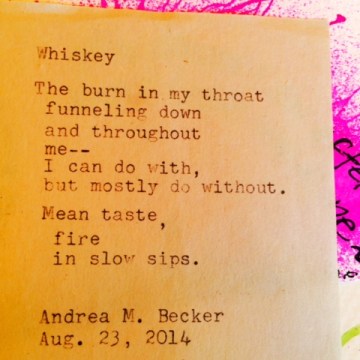 Whiskey
The burn in my throat
funneling down
and throughout
me--
I can do with,
but mostly do without.
Mean taste,
fire
in slow sips.
Andrea M. Becker
Aug. 23, 2014